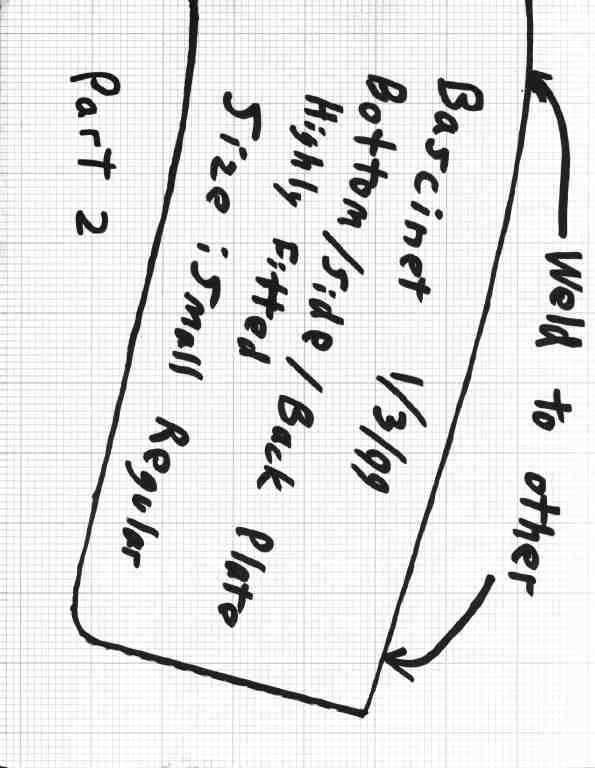 Weld to other
Bascinet 1/3/99
Bottom/Side/Back Plate
Highly Fitted
Size: Small Regular
Part 2